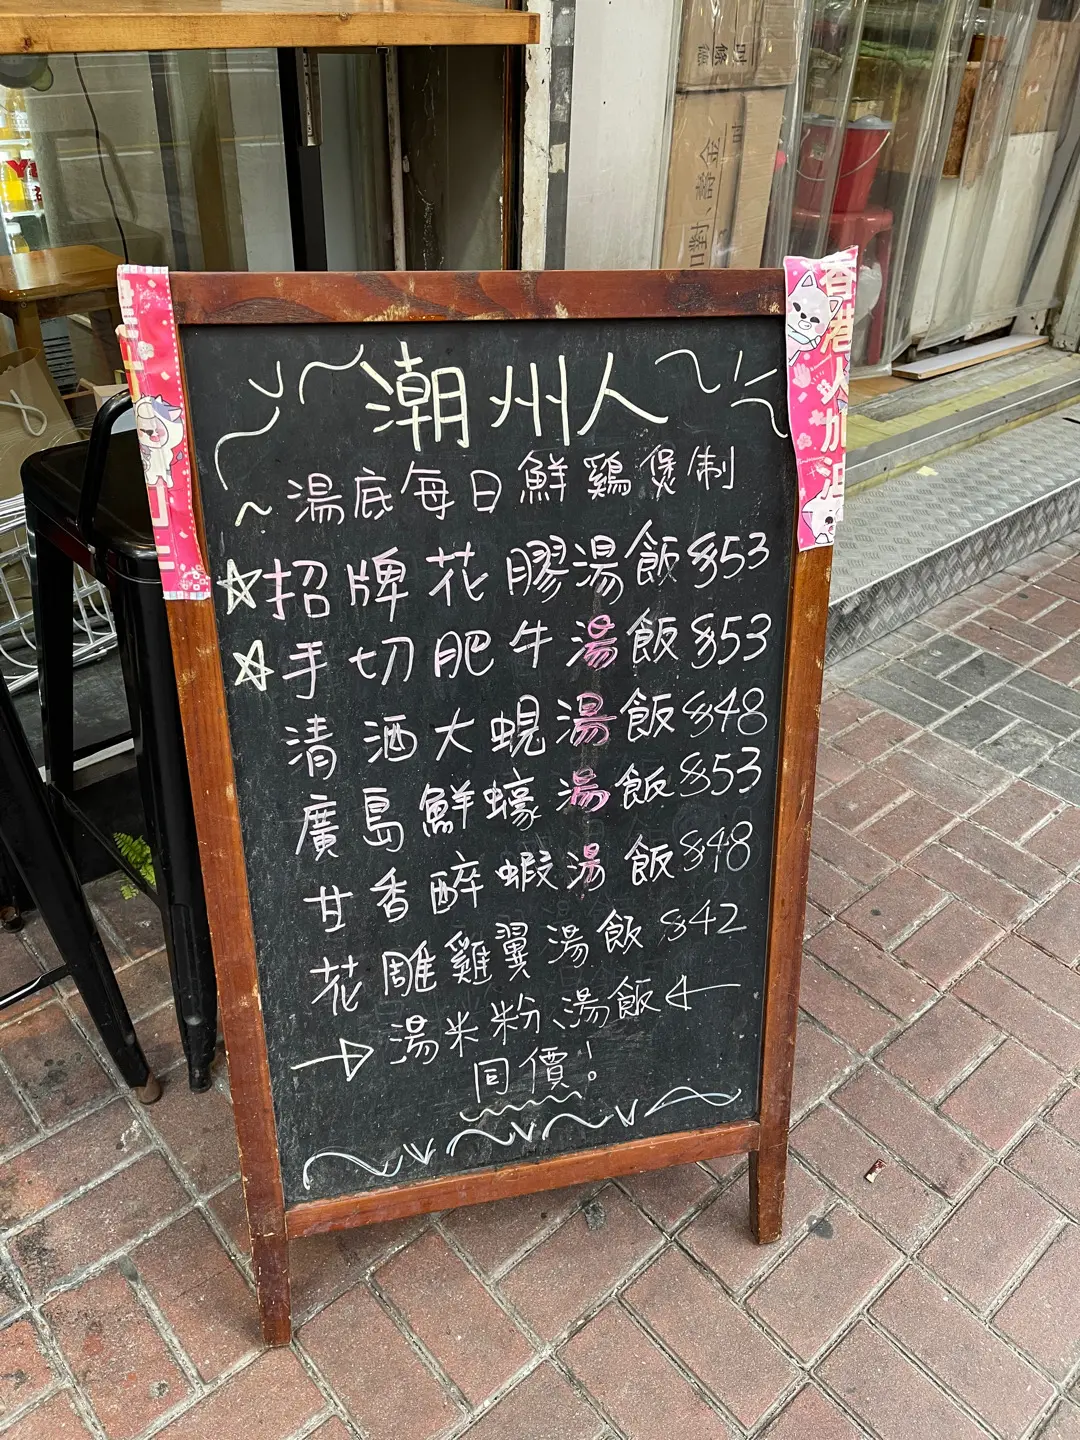 潮州人
~湯底每日鮮鷄煲制
☆招牌花膠湯飯$53
☆手切肥牛湯飯$53
清酒大蜆湯飯$48
廣島鮮蠔湯飯$53
甘香醉蝦湯飯$48
花雕雞翼湯飯$42
→湯米粉、湯飯←
同價!
香港人加油